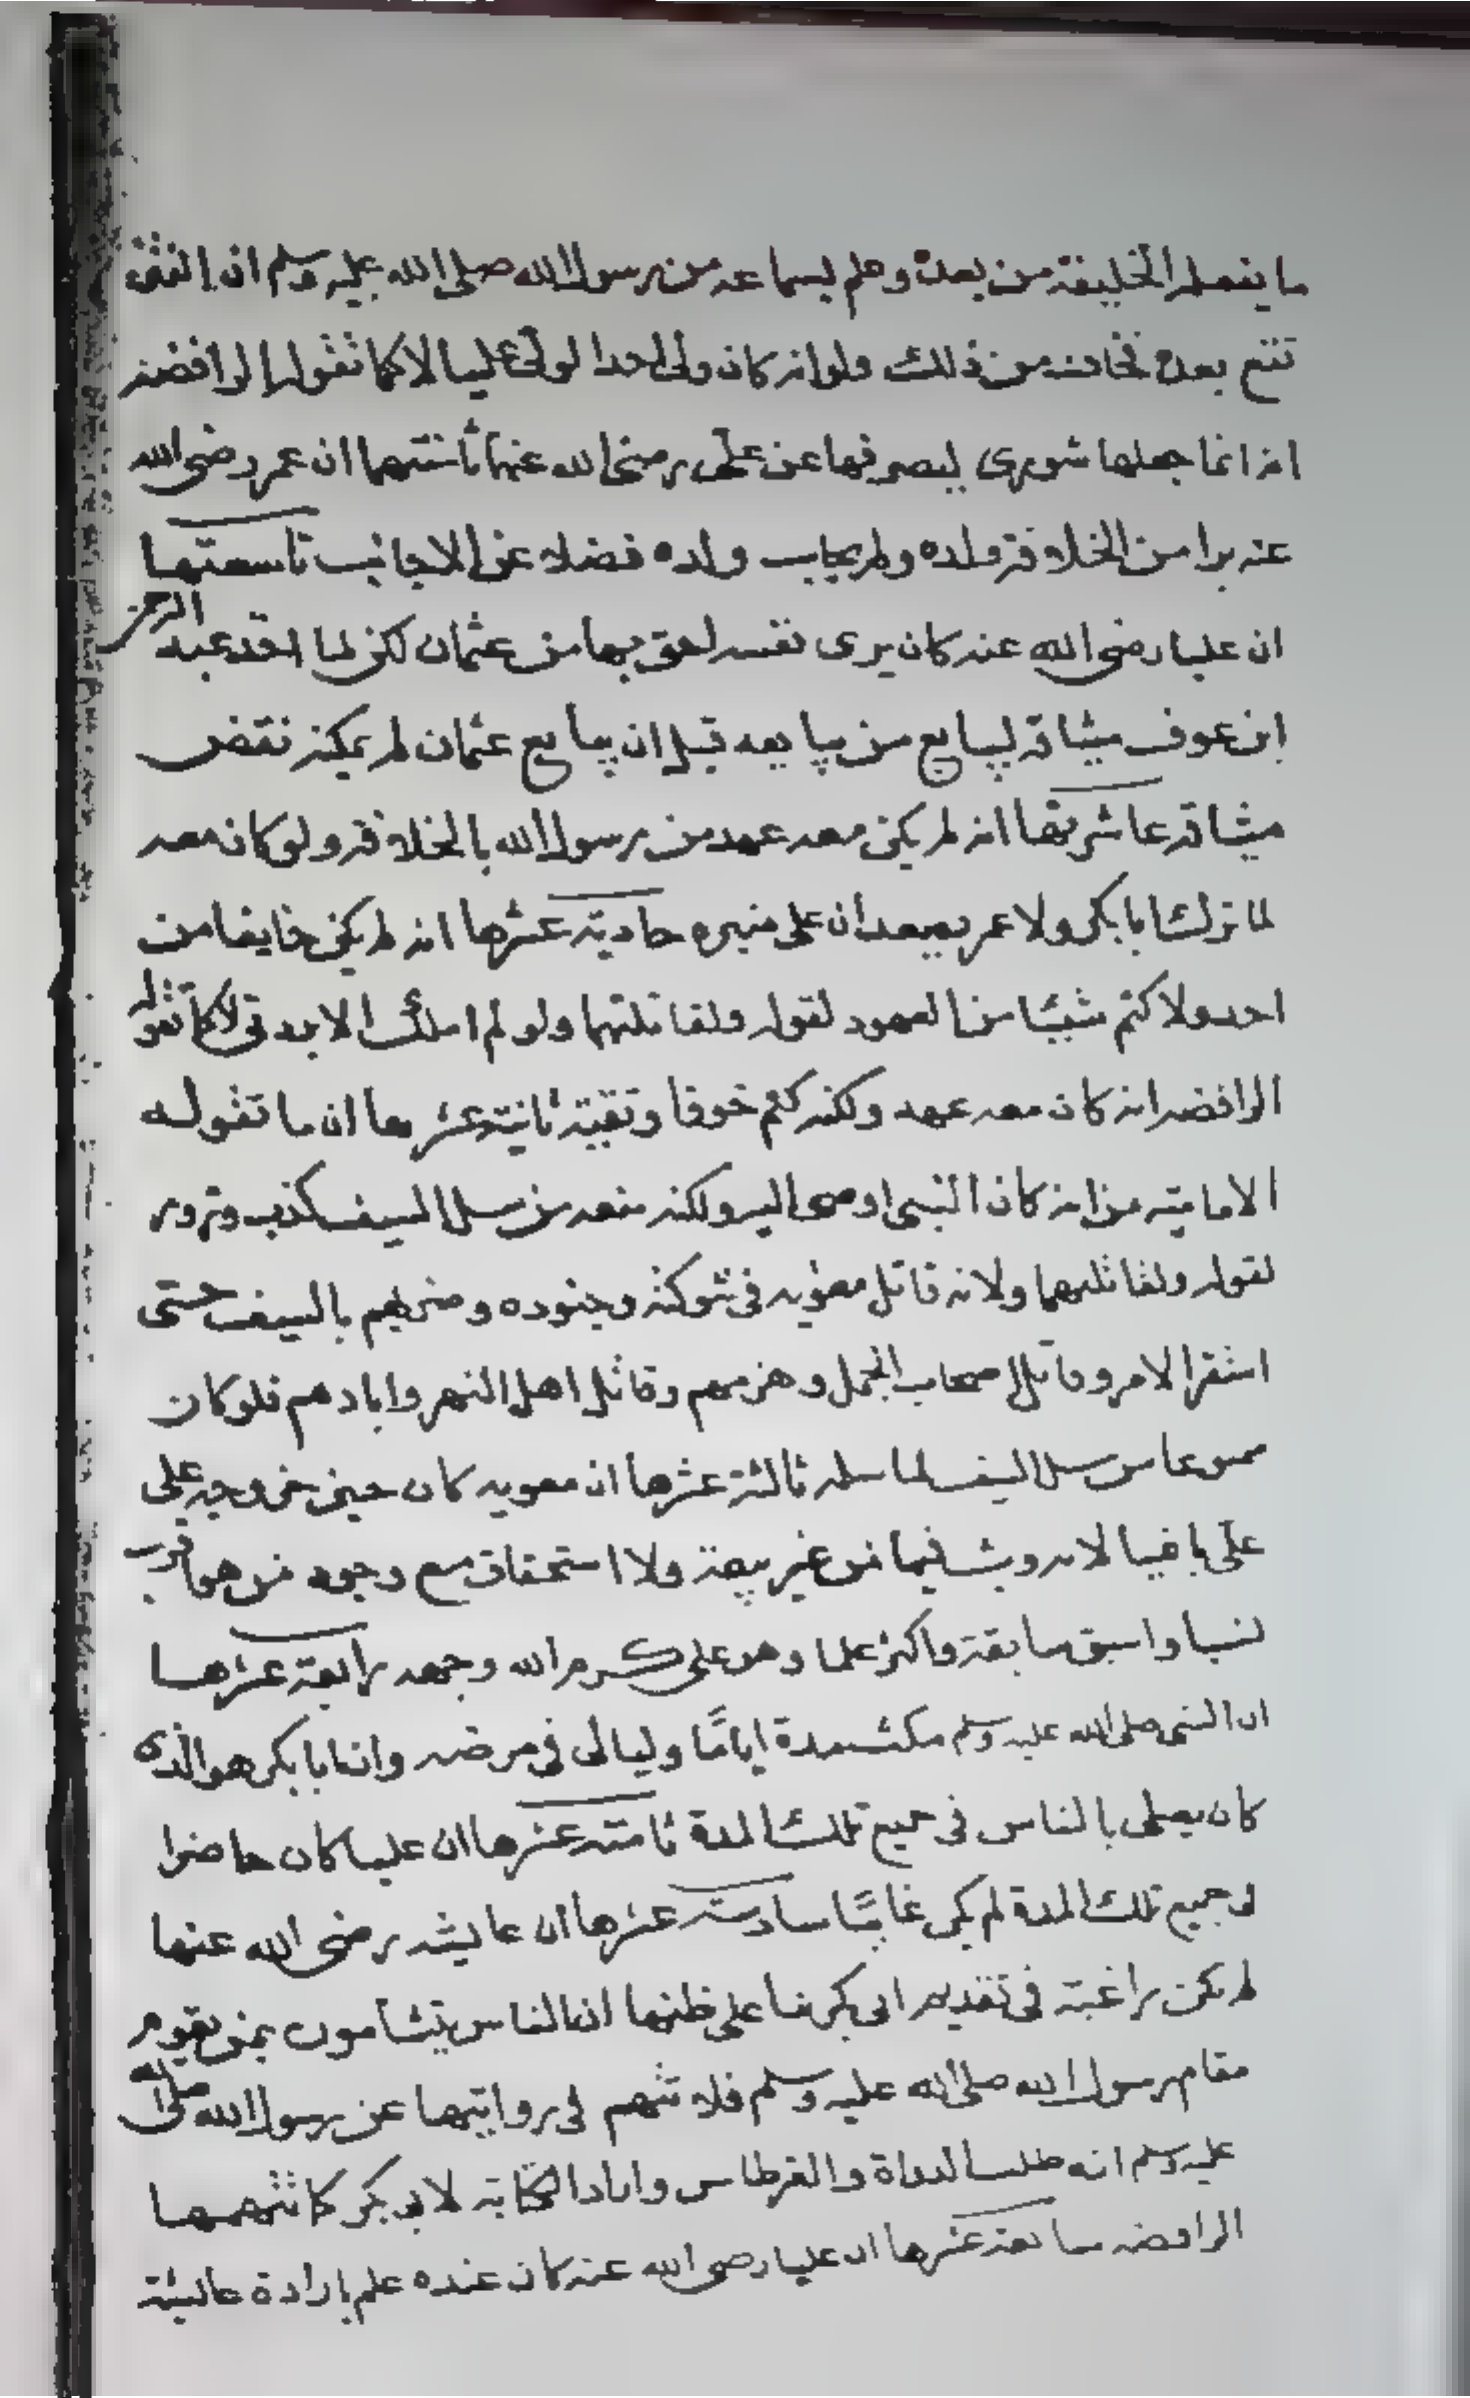 ما يفعله الخليفة من بعده وعلم بسماعه من رسول الله صلى الله عليه وسلم ان الفتن
تقع بعده فخاف من ذلك ولو انه كان ولى احدا لولى عليا لا كما تقوله الرافضة
انه انما جعلها شورى ليصرفها عن على رضى الله عنهما ثامنتهما ان عمر رضى الله
عنه برا من الخلافة ولده ولم يحاب ولده فضلا عن الاجانب تاسعتها
ان عليا رضى الله عنه كان يرى نفسه احق بها من عثمان لكن لما اخذ عبد الرحمن
ابن عوف ميثاقه ليبايع من يبايعه قبل ان يبايع عثمان لم يمكنه نقض
ميثاقه عاشرتها انه لم يكن معه عهد من رسول الله بالخلافة ولو كان معه
لما ترك ابا بكر ولا عمر يصعدان على منبره حادية عشرها انه لم يكن خايفا من
احد ولا كتم شيئا من العهود لقوله ولقاتلتهما ولو لم املك الا بردتى لا كما تقوله
الرافضه انه كان معه عهد ولكنه كتم خوفا وتقية ثانية عشرها ان ما تقوله
الامامية من انه كان النبى اوصى اليه ولكنه منعه من سل السيف كذب وتزوير
لقوله ولقاتلتهما ولانه قاتل معويه فى شوكته وجنوده وضربهم بالسيف حتى
استقر الامر وقاتل اصحاب الجمل وهزمهم وقاتل اهل النهر وابادهم فلو كان
ممنوعا من سل السيف لما سله ثالثة عشرها ان معويه كان حين خروجه على
على باغيا لانه وثب فيها من غير بيعة ولا استحقاق مع وجود من هو اقرب
نسبا واسبق سابقة واكثر علما وهو على كرم الله وجهه رابعة عشرها
ان النبى صلى الله عليه وسلم مكث مدة اياما وليالى فى مرضه وان ابا بكر هو الذى
كان يصلى بالناس فى جميع تلك المدة خامسة عشرها ان عليا كان حاضرا
فى جميع تلك المدة لم يكن غائبا سادسة عشرها ان عايشه رضى الله عنها
لم تكن راغبة فى تقديم ابى بكر بنا على ظنها ان الناس يتشأمون بمن يقوم
مقام رسول الله صلى الله عليه وسلم فلا تتهم فى روايتها عن رسول الله صلى الله
عليه وسلم انه طلب الدواة والقرطاس واراد الكتابة لابى بكر كما تتهمها
الرافضه سابعة عشرها ان عليا رضى الله عنه كان عنده علم بارادة عائشة